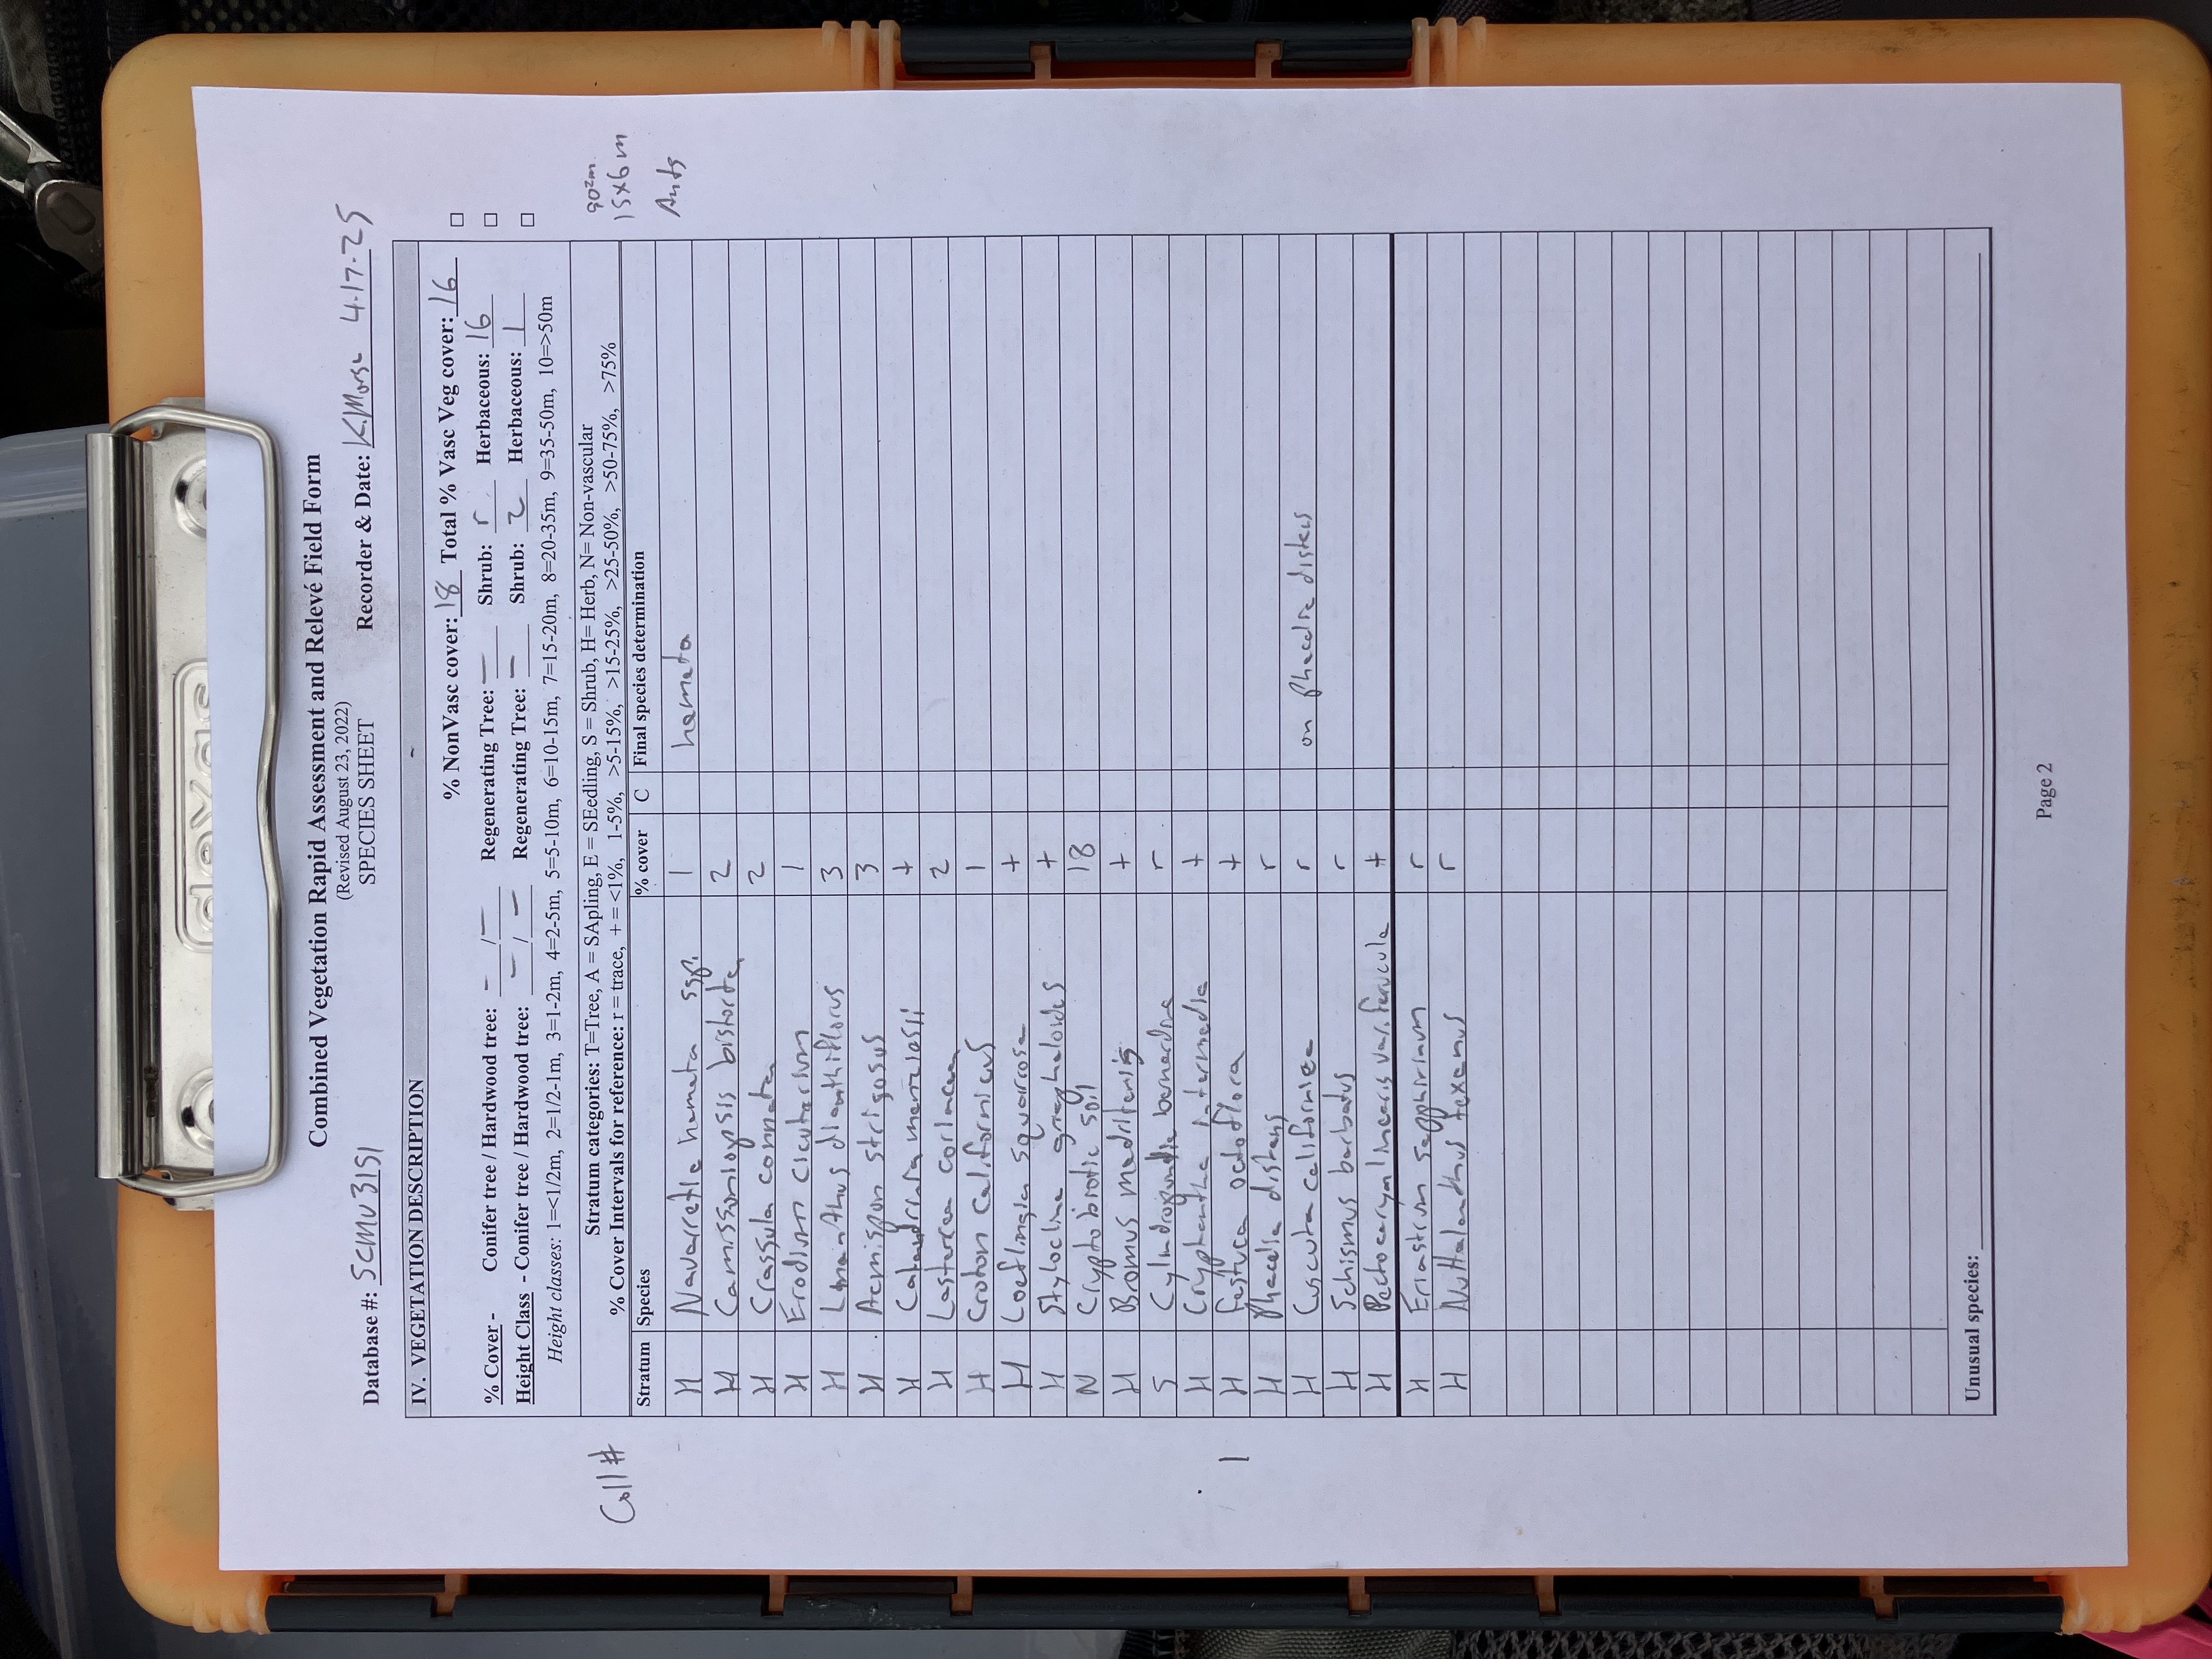 Combined Vegetation Rapid Assessment and Relevé Field Form
(Revised August 23, 2022)
SPECIES SHEET
Database #: SCMU3151 Recorder & Date: K.Morse 4.17.25
IV. VEGETATION DESCRIPTION -
% NonVasc cover: 18 Total % Vasc Veg cover: 16
% Cover - Conifer tree / Hardwood tree: - / - Regenerating Tree: - Shrub: r Herbaceous: 16
Height Class - Conifer tree / Hardwood tree: - / - Regenerating Tree: - Shrub: 2 Herbaceous: 1
Height classes: 1=<1/2m, 2=1/2-1m, 3=1-2m, 4=2-5m, 5=5-10m, 6=10-15m, 7=15-20m, 8=20-35m, 9=35-50m, 10=>50m
Coll #
Stratum categories: T=Tree, A = SApling, E = SEedling, S = Shrub, H= Herb, N= Non-vascular
% Cover Intervals for reference: r = trace, + = <1%, 1-5%, >5-15%, >15-25%, >25-50%, >50-75%, >75%
90²m
15x6m
Ants
Stratum Species % cover C Final species determination
H Navarretia hamata ssp. 1 hamata
H Camissoniopsis bistorta 2
H Crassula connata 2
H Erodium cicutarium 1
H Linanthus dianthiflorus 3
H Acmispon strigosus 3
H Calandrinia menziesii +
H Lastarriaea coriacea 2
H Croton californicus 1
H Loeflingia squarrosa +
H Stylocline gnaphaloides +
N Cryptobiotic soil 18
H Bromus madritensis +
S Cylindropuntia bernardina r
H Cryptantha intermedia +
1 H Festuca octoflora +
H Phacelia distans r
H Cuscuta californica r on phacelia distans
H Schismus barbatus r
H Pectocarya linearis var. ferocula +
H Eriastrum sapphirinum r
H Nuttalanthus texanus r
Unusual species:
Page 2